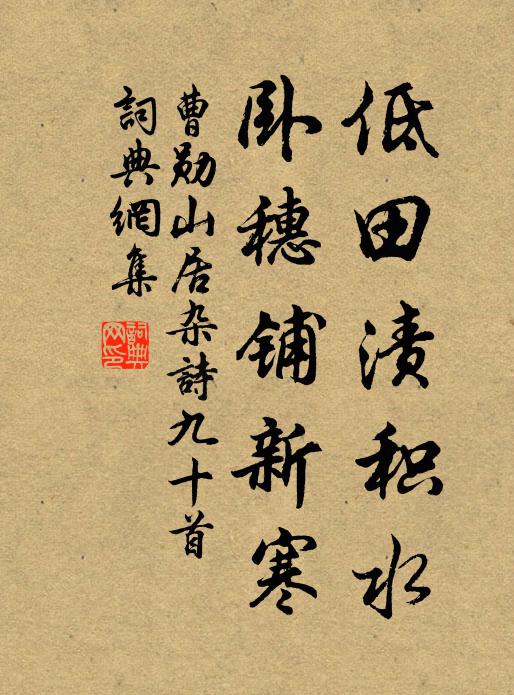 低田渍积水
卧穗铺新寒
曹勋山居杂詩九十首
詞典網集
詞典
网印